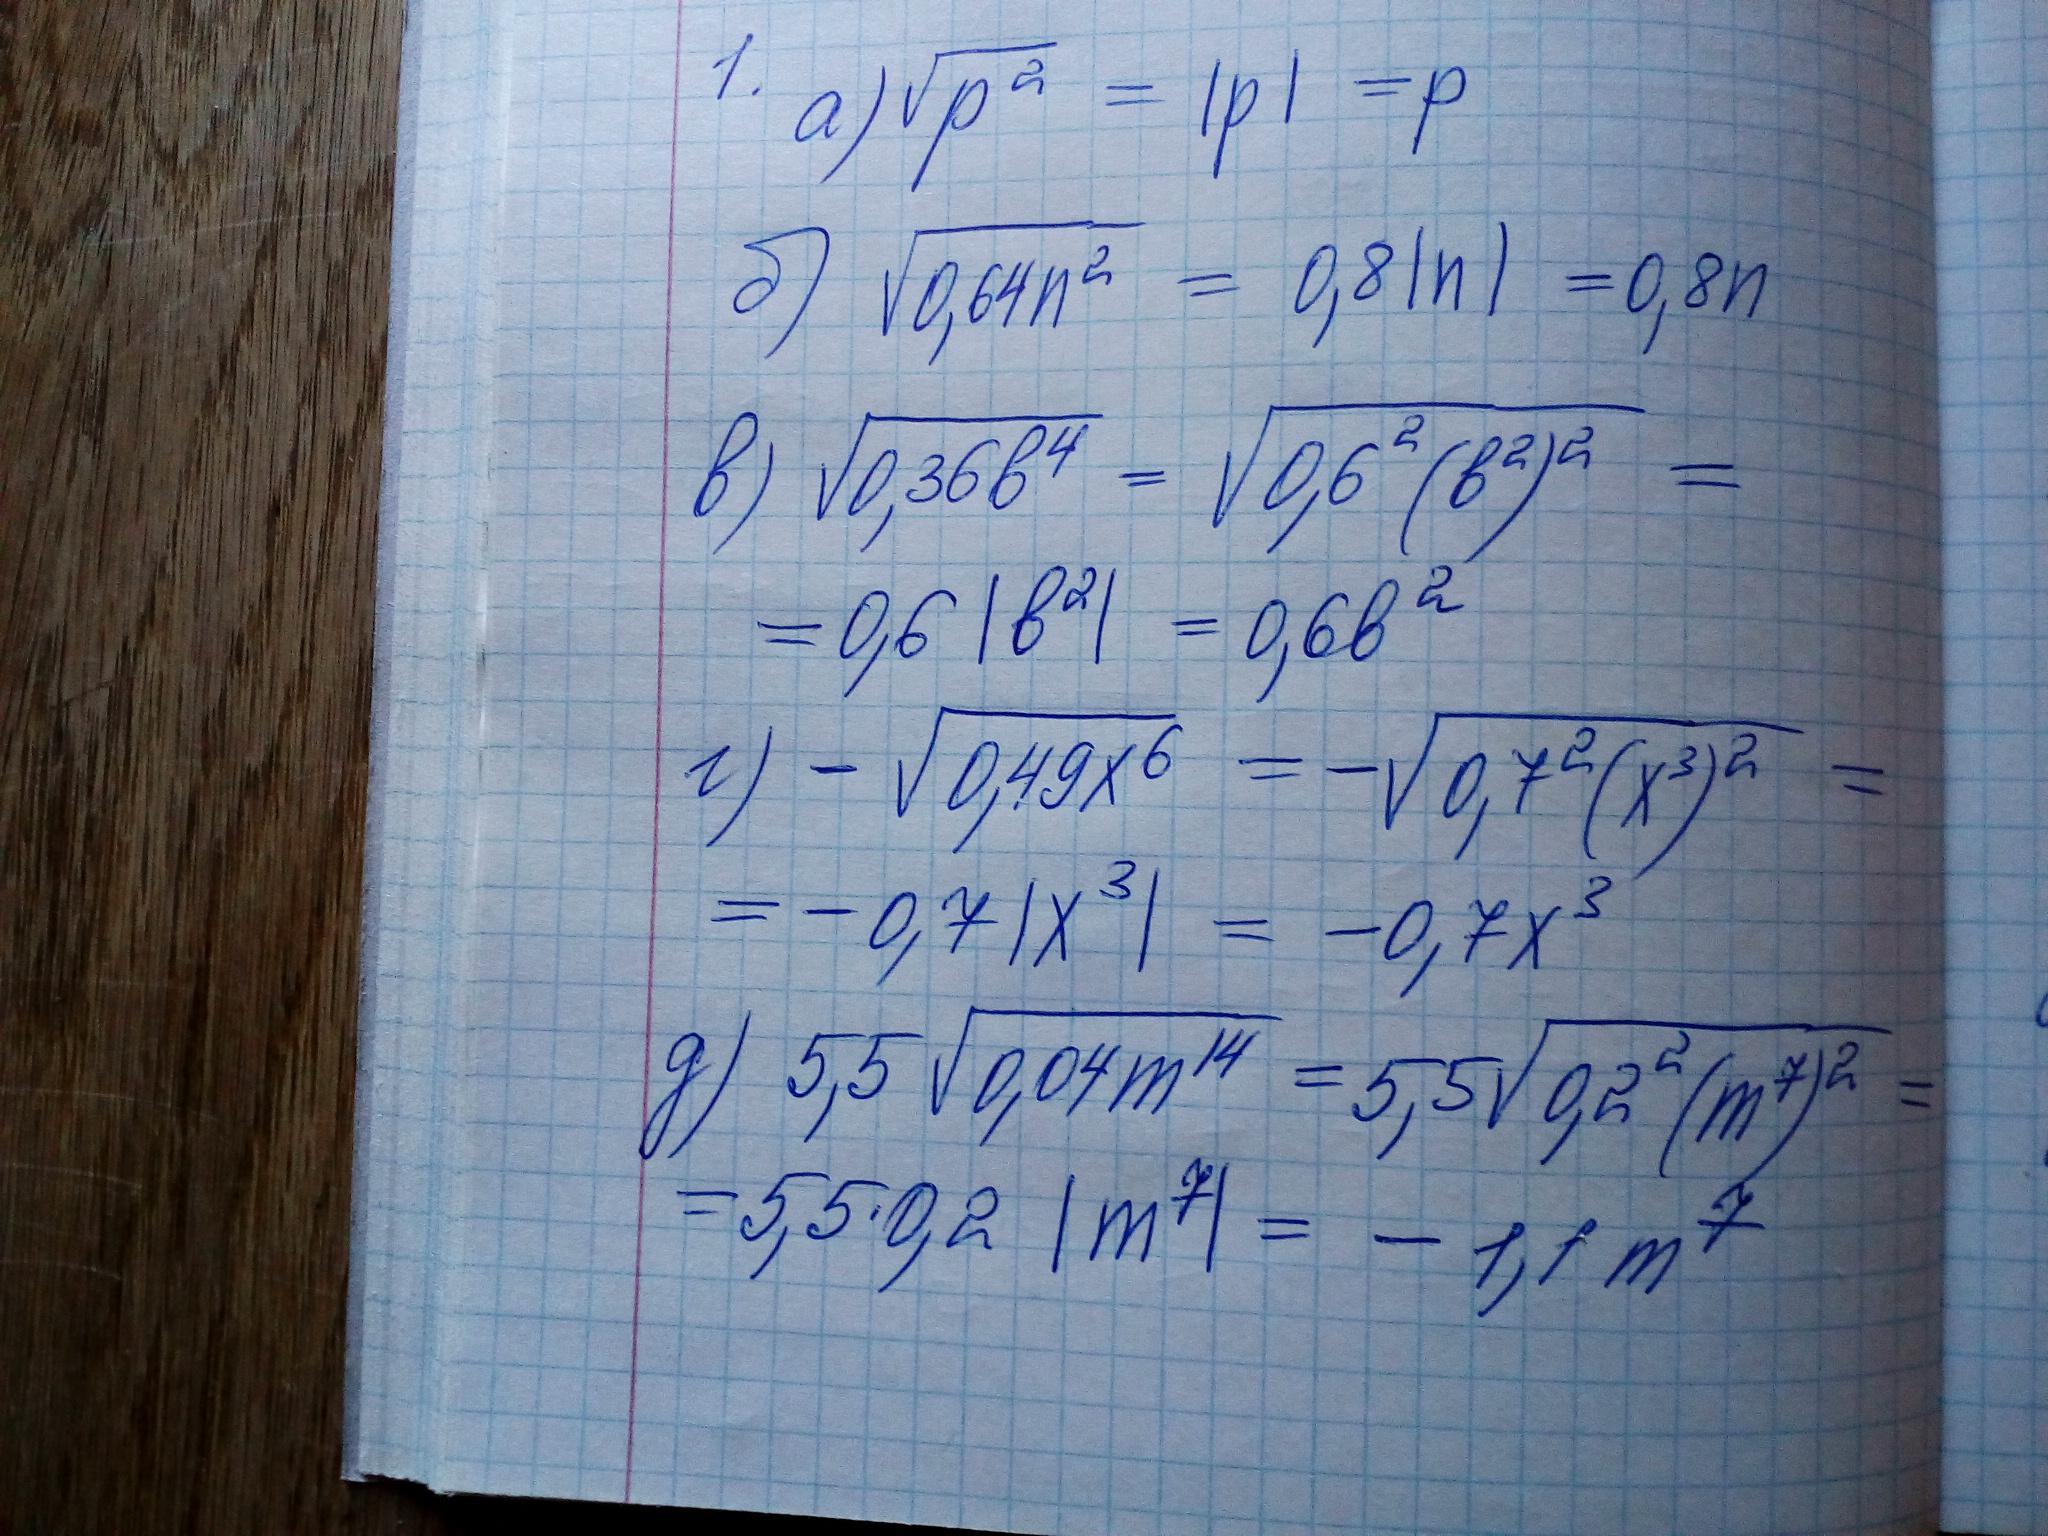 1. а) √p² = |p| = p
б) √0,64n² = 0,8|n| = 0,8n
в) √0,36b⁴ = √0,6²(b²)² =
= 0,6 |b²| = 0,6b²
г) - √0,49x⁶ = -√0,7²(x³)² =
= -0,7|x³| = -0,7x³
д) 5,5√0,04m¹⁴ = 5,5√0,2²(m⁷)² =
= 5,5·0,2 |m⁷| = - 1,1m⁷